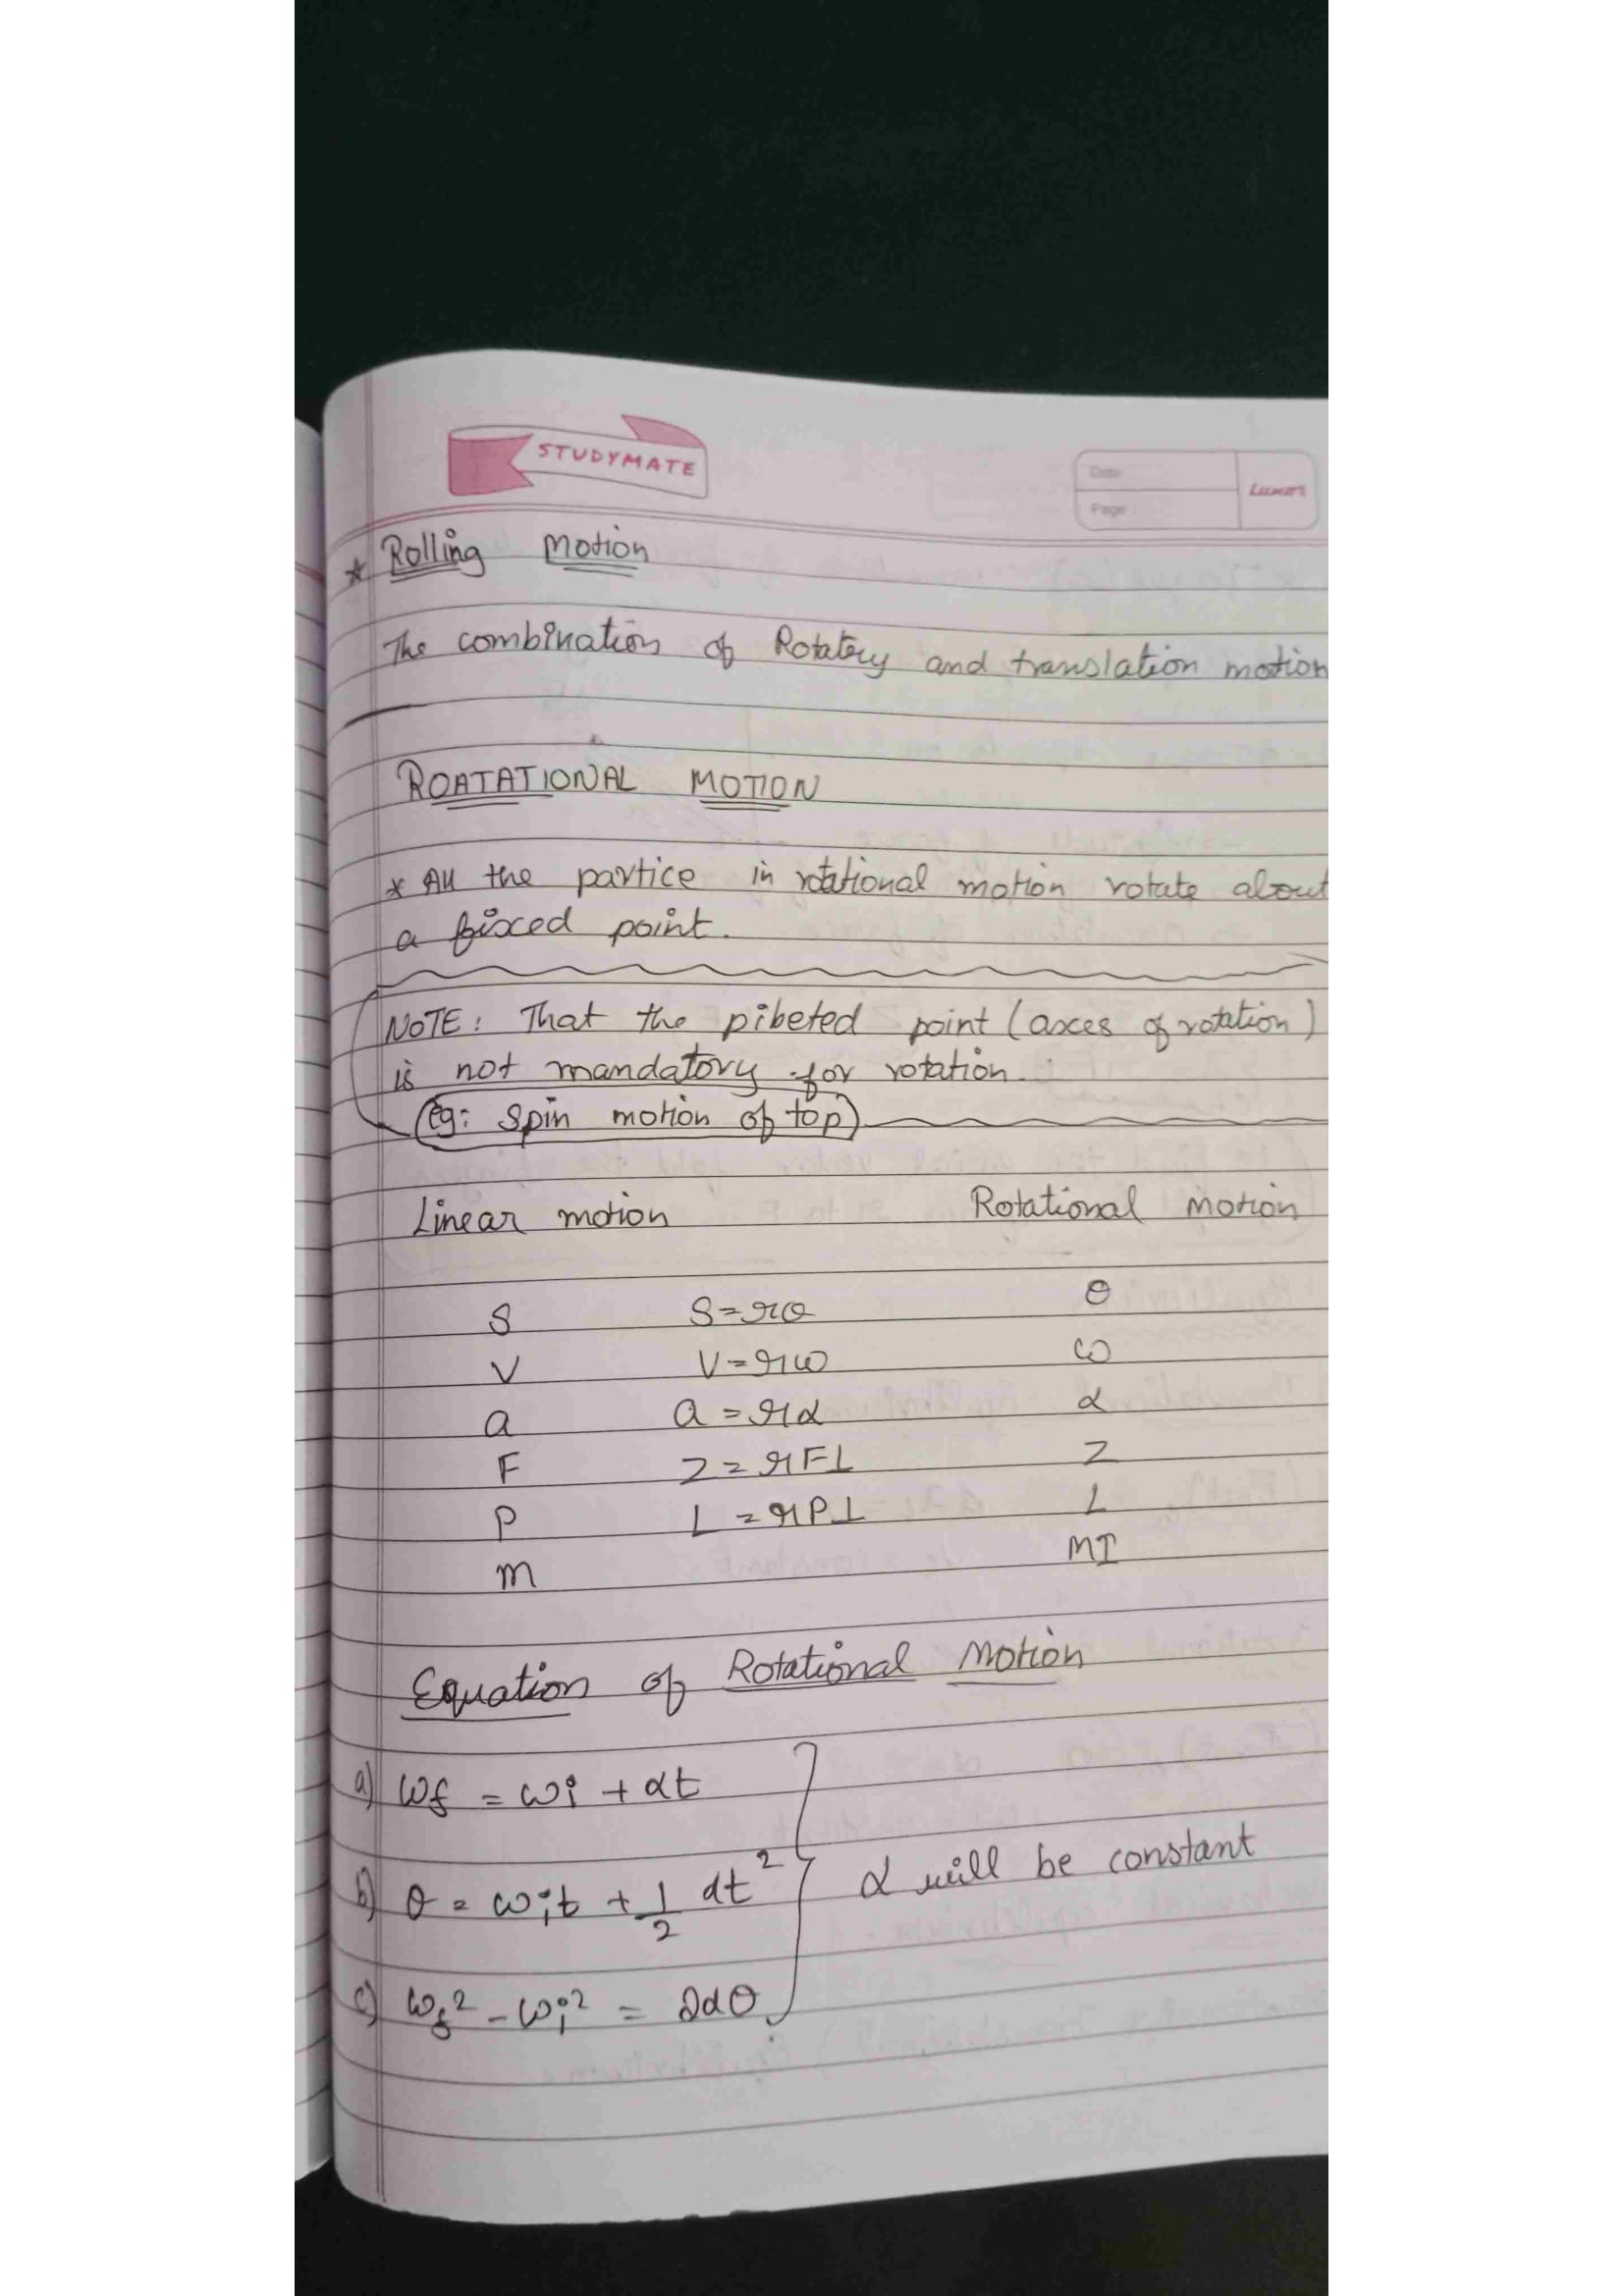 STUDYMATE
Date
Page
Luxor
* Rolling Motion
The combination of Rotatory and translation motion
ROATATIONAL MOTION
* All the partice in rotational motion rotate about
a fixed point.
NOTE: That the pibeted point (axes of rotation)
is not mandatory for rotation.
(eg: Spin motion of top)
Linear motion Rotational Motion
S S=rθ θ
V V=rω ω
a a=rα α
F τ=rF⊥ τ
P L=rP⊥ L
m MI
Equation of Rotational Motion
a) ωf = ωi + αt
b) θ = ωit + 1/2 αt²
α will be constant
c) ωf² - ωi² = 2αθ